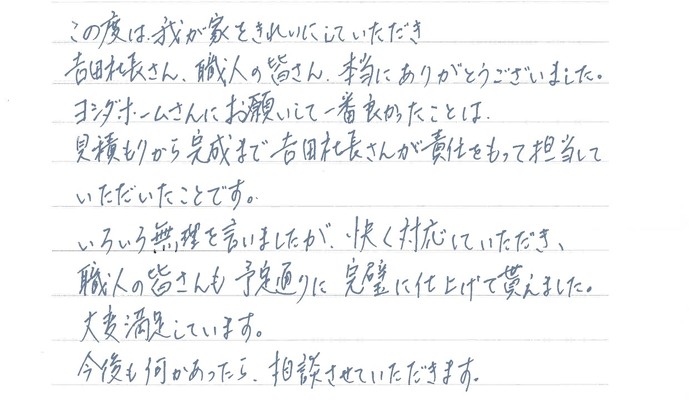 この度は、我が家をきれいにしていただき
吉田社長さん、職人の皆さん、本当にありがとうございました。
ヨシダホームさんにお願いして一番良かったことは、
見積もりから完成まで吉田社長さんが責任をもって担当して
いただいたことです。
いろいろ無理を言いましたが、快く対応していただき、
職人の皆さんも予定通りに完璧に仕上げて貰えました。
大変満足しています。
今後も何かあったら、相談させていただきます。